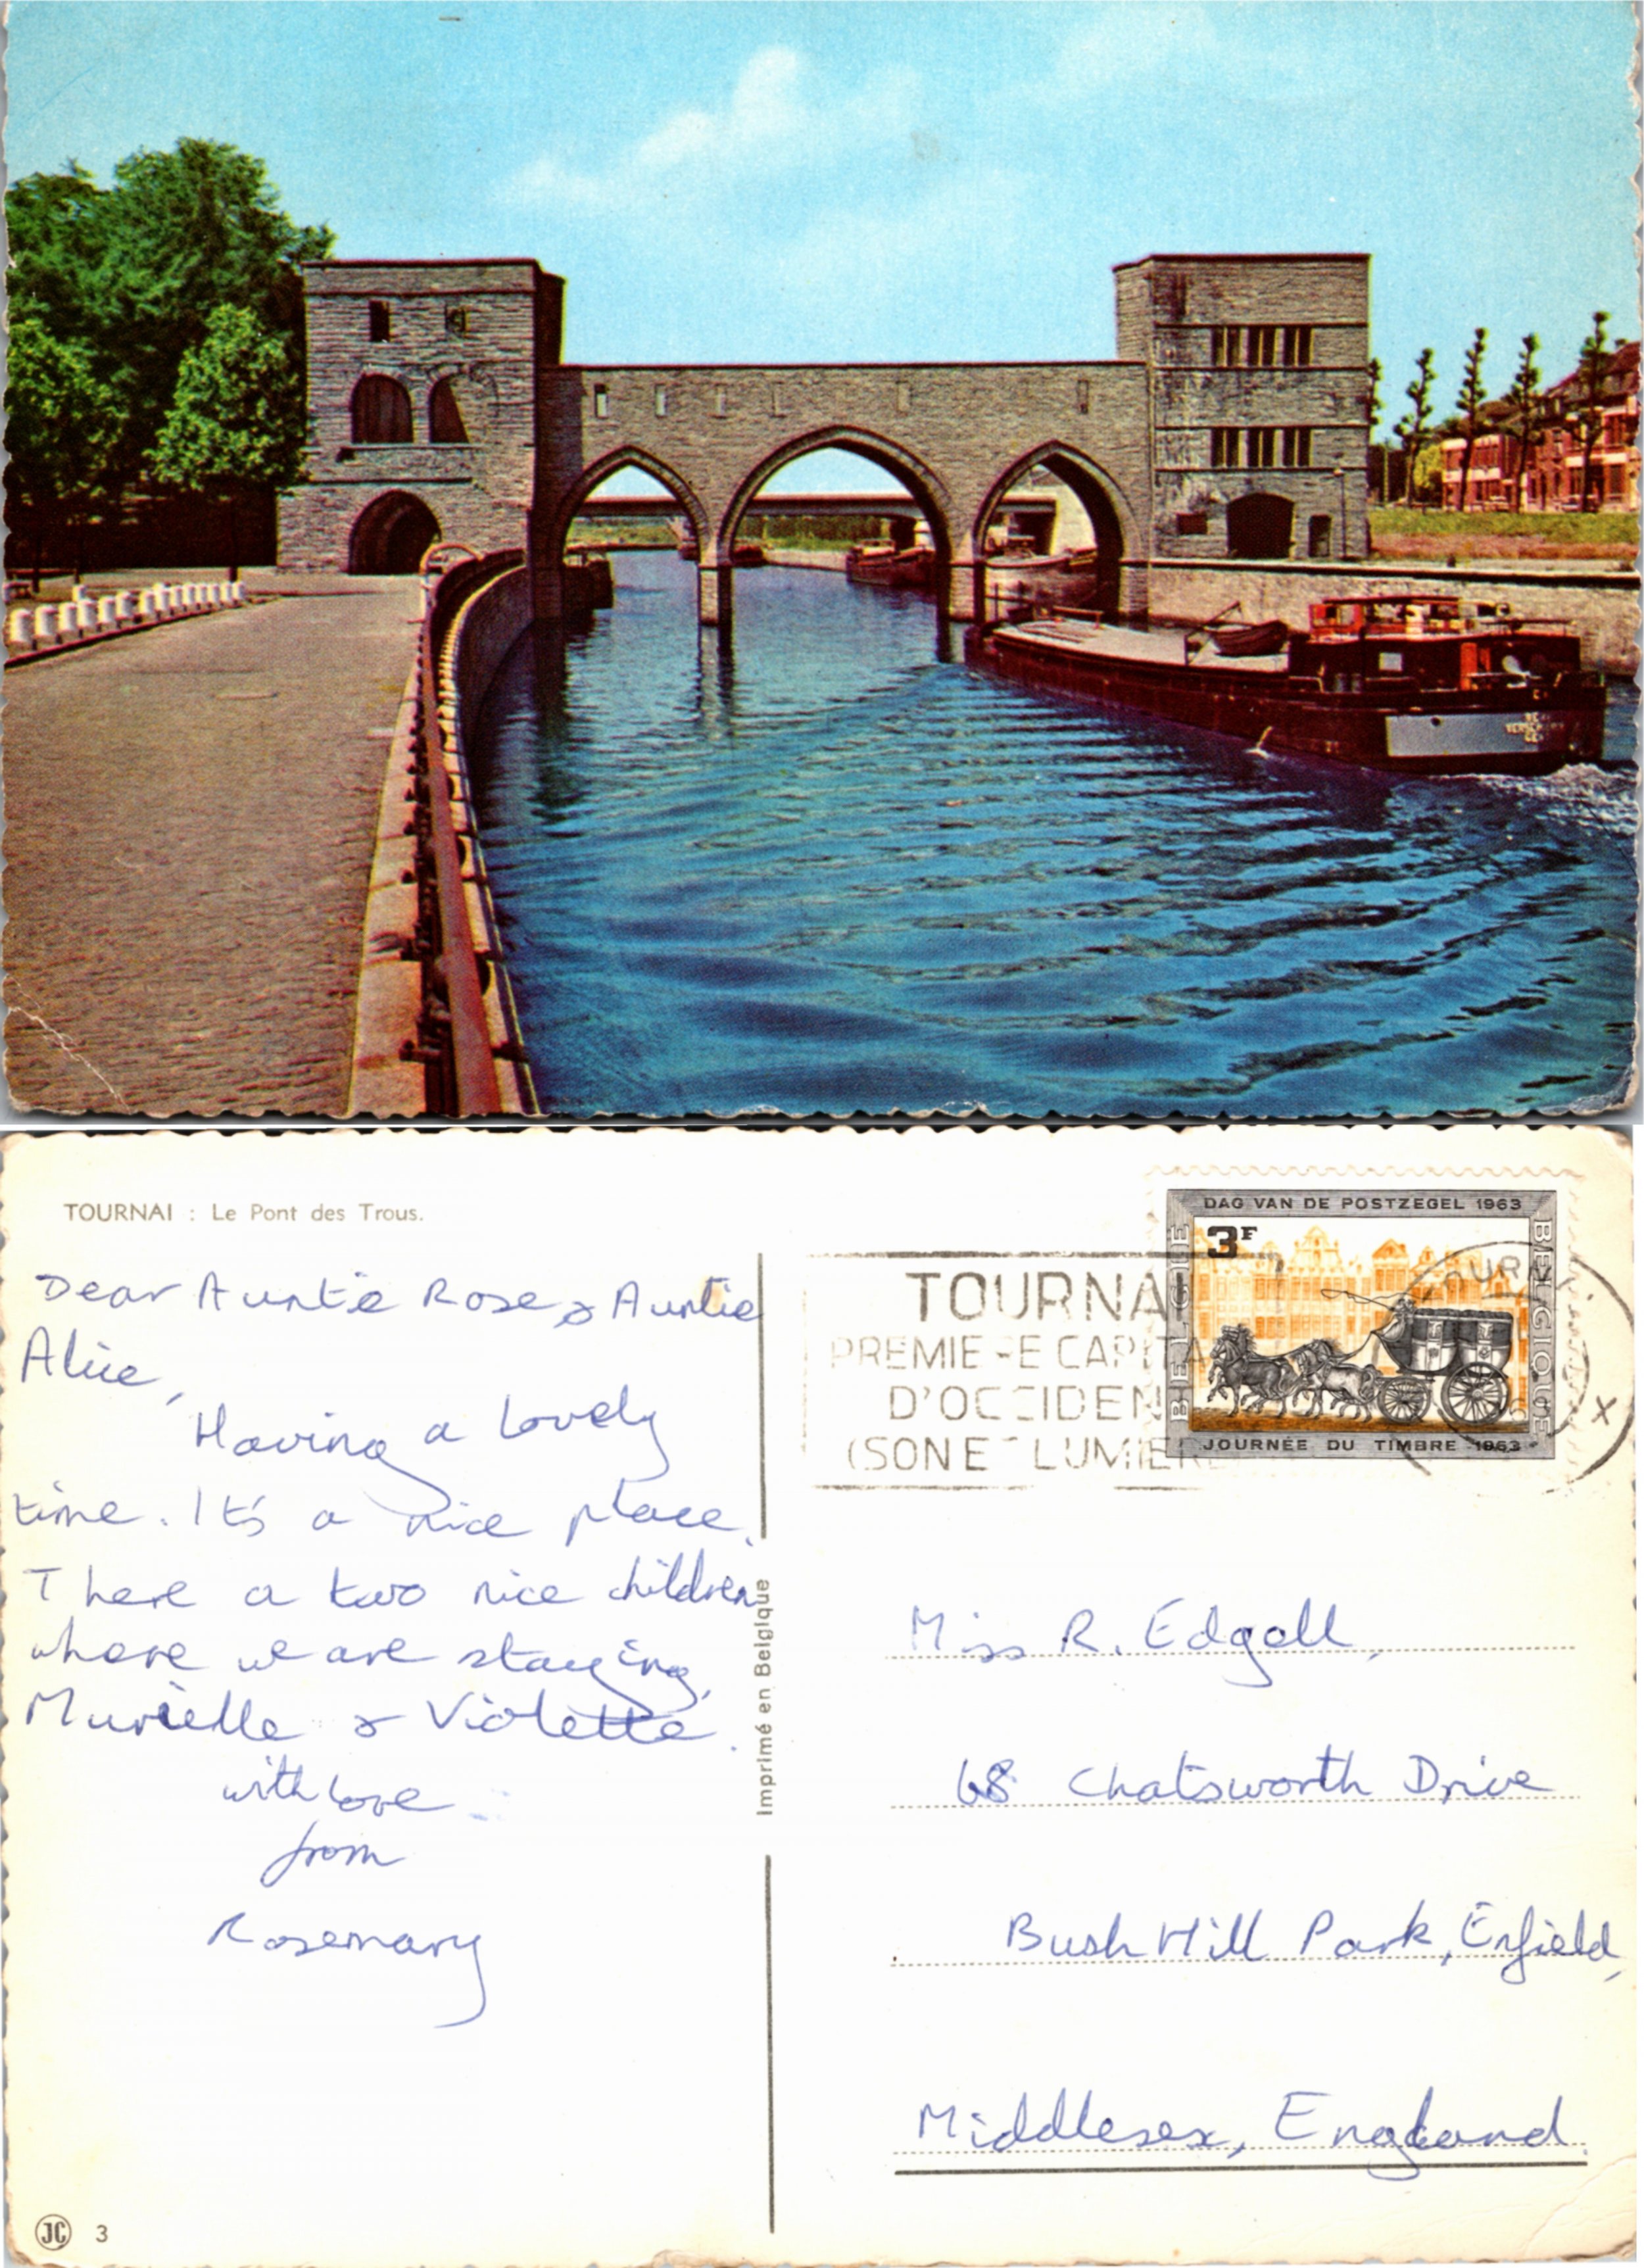 TOURNAI : Le Pont des Trous.
Dear Auntie Rose & Auntie
Alice,
Having a lovely
time. It's a nice place.
There a two nice children
where we are staying,
Murielle & Violette.
with love
from
Rosemary
JC 3
Imprimé en Belgique
TOURNAI
PREMIERE CAPITA
D'OCCIDEN
(SON ET LUMIER
DAG VAN DE POSTZEGEL 1963
3F
BELGIË
BELGIQUE
JOURNÉE DU TIMBRE 1963
TOURNAI
X
Miss R. Edgall,
68 Chatsworth Drive
Bush Hill Park, Enfield,
Middlesex, England.